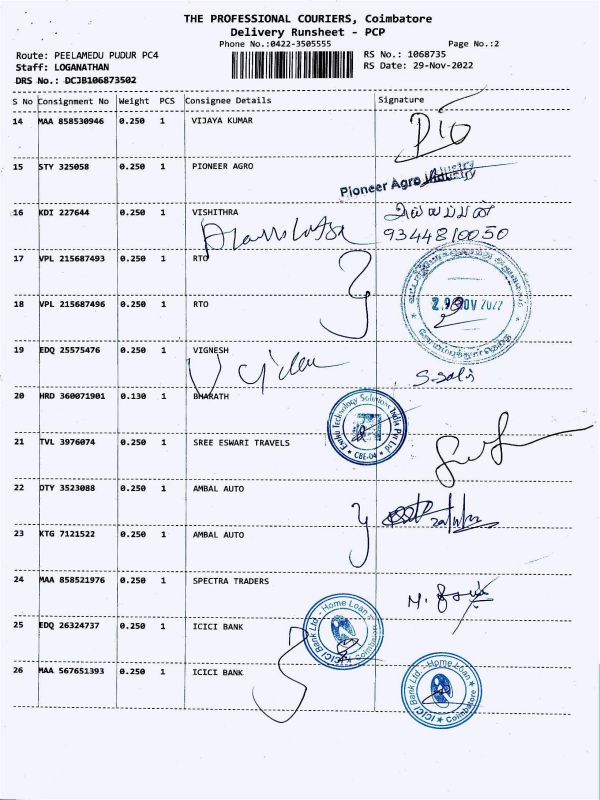 THE PROFESSIONAL COURIERS, Coimbatore
Delivery Runsheet - PCP
Phone No.:0422-3505555 Page No.:2
Route: PEELAMEDU PUDUR PC4 RS No.: 1068735
Staff: LOGANATHAN RS Date: 29-Nov-2022
DRS No.: DCJB106873502
S No Consignment No Weight PCS Consignee Details Signature
14 MAA 858530946 0.250 1 VIJAYA KUMAR
15 STY 325058 0.250 1 PIONEER AGRO
Pioneer Agro Industry
16 KDI 227644 0.250 1 VISHITHRA
9344810050
17 VPL 215687493 0.250 1 RTO
18 VPL 215687496 0.250 1 RTO
29 NOV 2022
19 EDQ 25575476 0.250 1 VIGNESH
20 HRD 360071901 0.130 1 BHARATH
Technology Solutions India Pvt Ltd
* CBE-04 *
21 TVL 3976074 0.250 1 SREE ESWARI TRAVELS
22 DTY 3523088 0.250 1 AMBAL AUTO
23 KTG 7121522 0.250 1 AMBAL AUTO
24 MAA 858521976 0.250 1 SPECTRA TRADERS
25 EDQ 26324737 0.250 1 ICICI BANK
ICICI Bank Ltd. - Home Loan
Coimbatore
26 MAA 567651393 0.250 1 ICICI BANK
ICICI Bank Ltd. - Home Loan
* Coimbatore